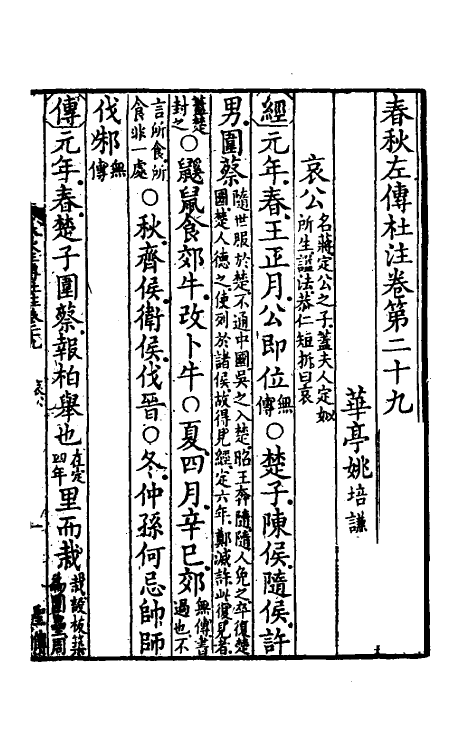 春秋左傳杜注卷第二十九
華亭姚培謙
哀公名蔣定公之子蓋夫人定姒所生諡法恭仁短折曰哀
經元年春王正月公即位無傳○楚子陳侯隨侯許
男圍蔡隨世服於楚不通中國吳之入楚昭王奔隨隨人免之卒復楚國楚人德之使列於諸侯故得見經定六年鄭滅許此復見者
蓋楚封之○鼷鼠食郊牛改卜牛○夏四月辛巳郊無傳書過也不
言所食所食非一處○秋齊侯衛侯伐晉○冬仲孫何忌帥師
伐邾無傳
傳元年春楚子圍蔡報柏舉也在定四年里而栽栽設板築為圍壘周